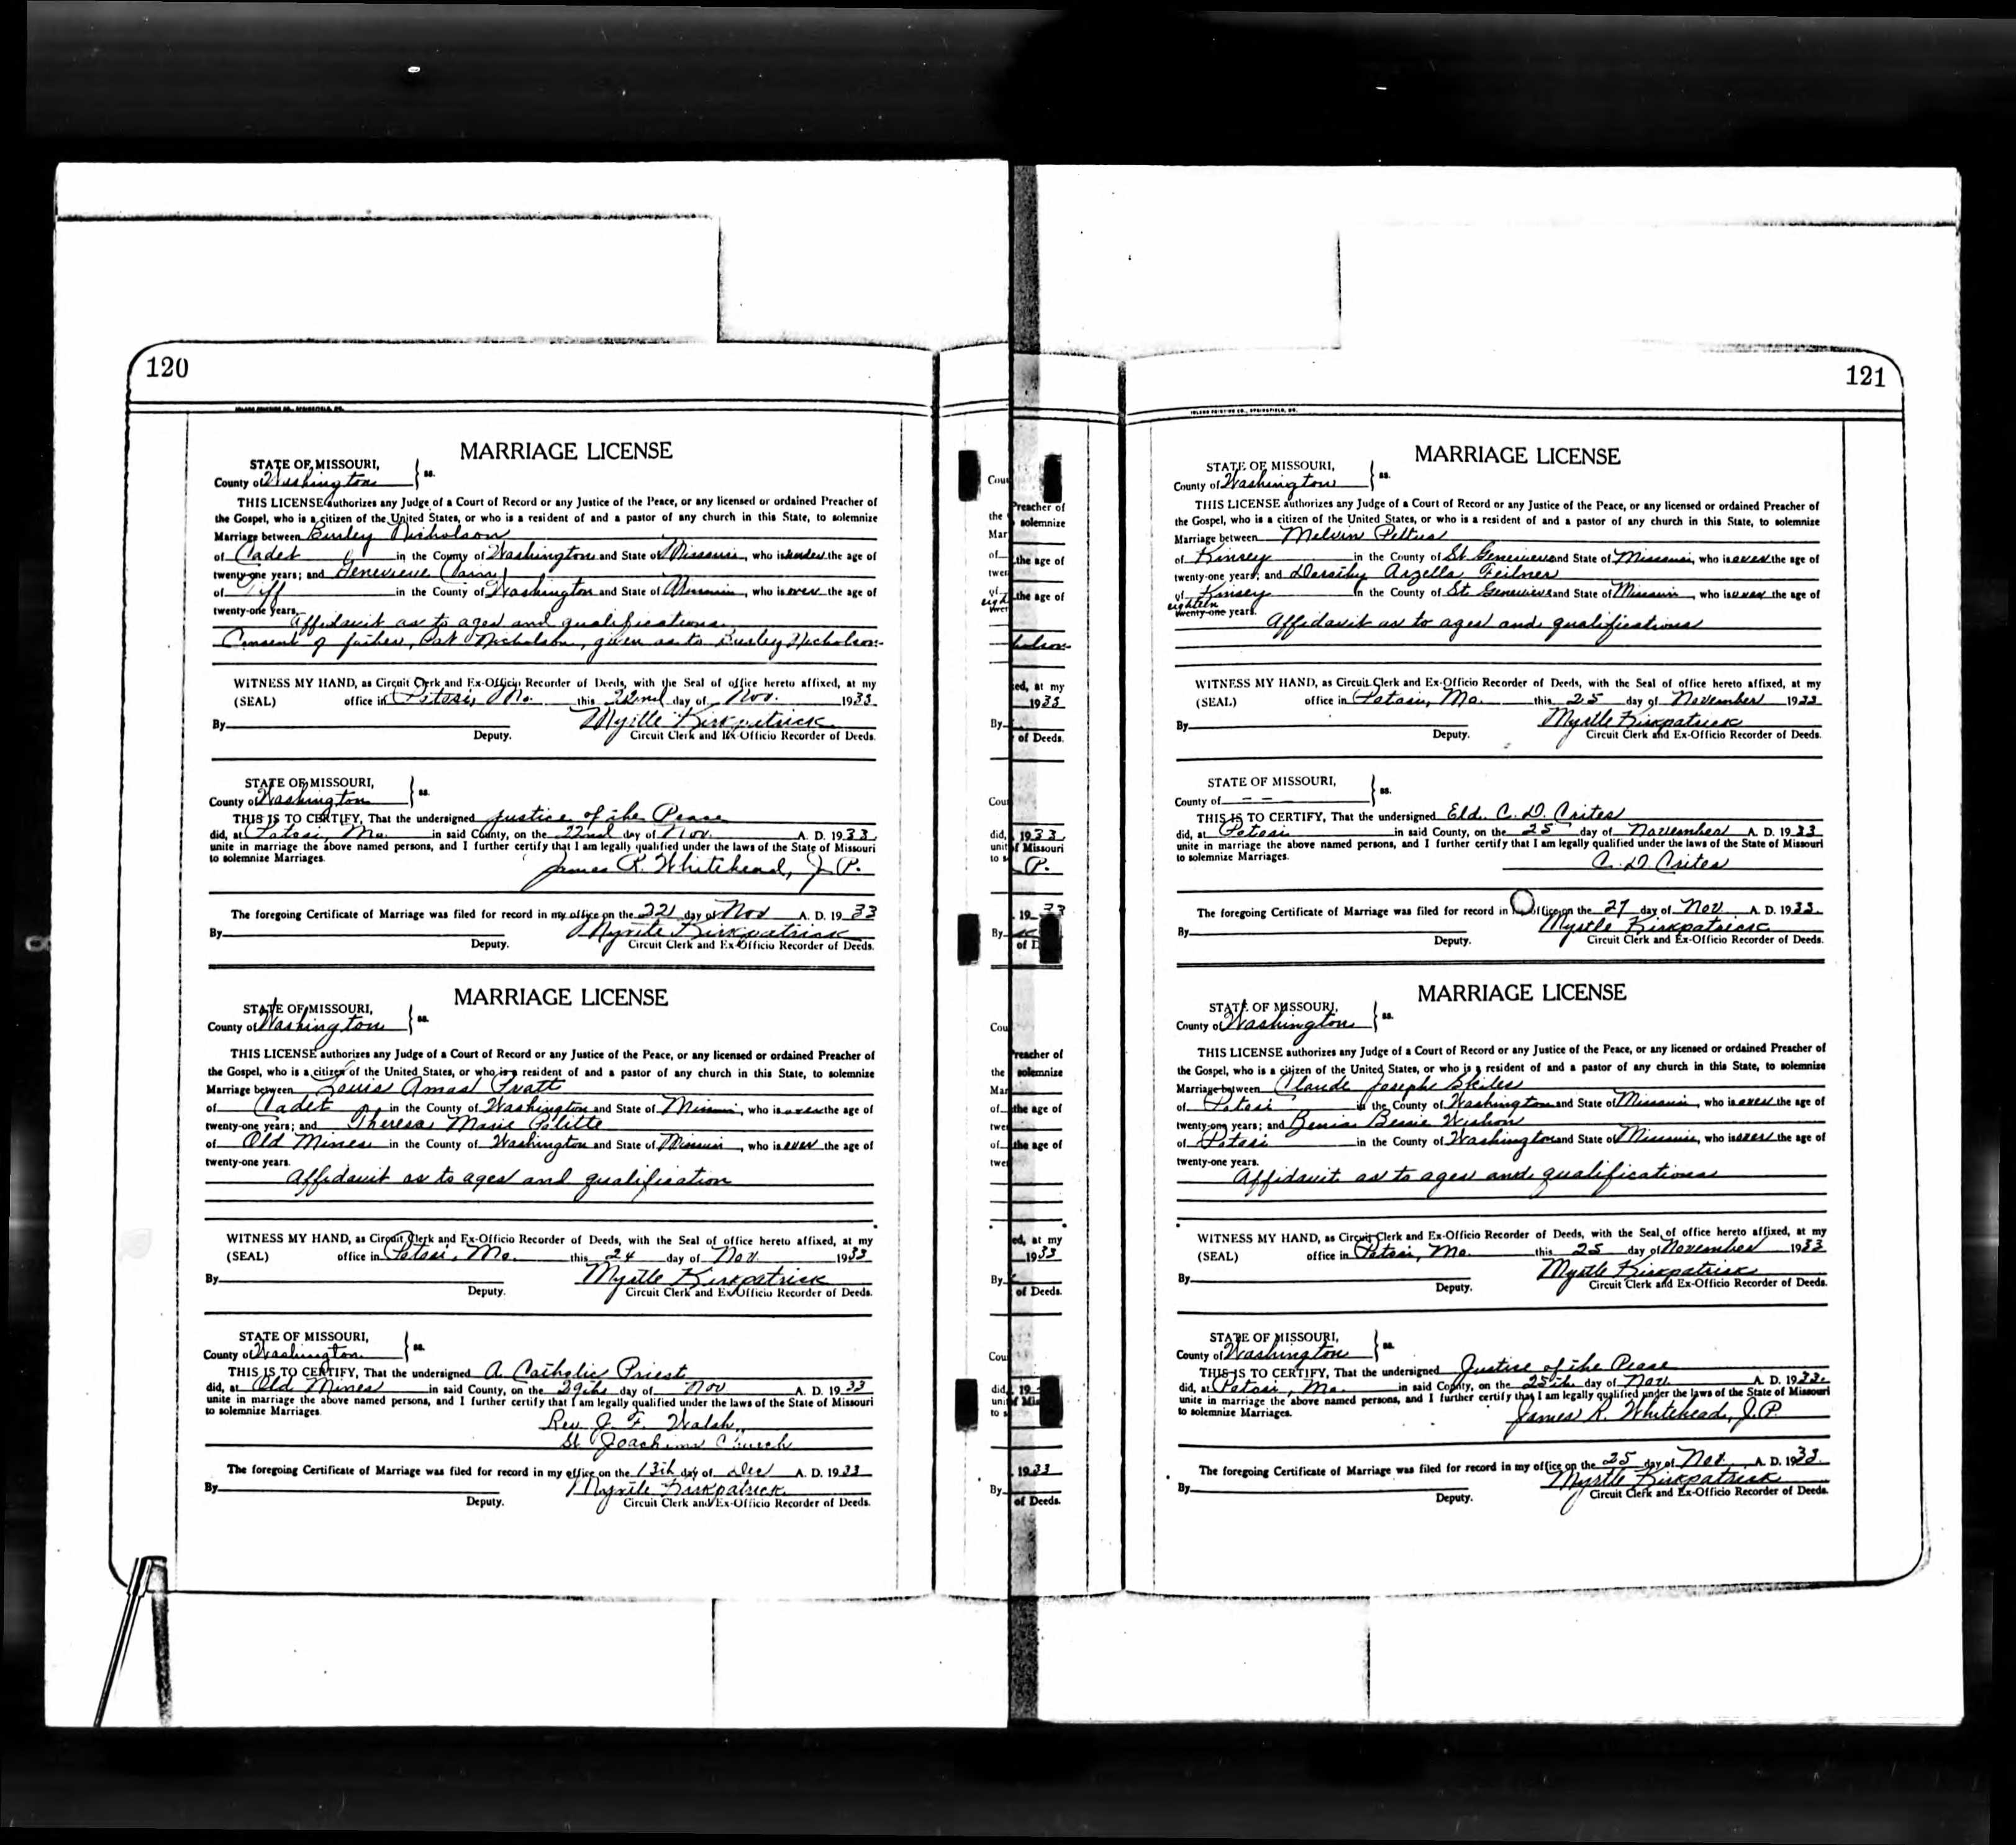 120
MARRIAGE LICENSE
STATE OF MISSOURI,
County of Washington } ss.
THIS LICENSE authorizes any Judge of a Court of Record or any Justice of the Peace, or any licensed or ordained Preacher of
the Gospel, who is a citizen of the United States, or who is a resident of and a pastor of any church in this State, to solemnize
Marriage between Burley Nicholson
of Cadet in the County of Washington and State of Missouri, who is under the age of
twenty-one years; and Genevieve
of Tiff in the County of Washington and State of Missouri, who is over the age of
twenty-one years.
Affidavit as to ages and qualifications.
Consent of father, Pat Nicholson, given as to Burley Nicholson.
WITNESS MY HAND, as Circuit Clerk and Ex-Officio Recorder of Deeds, with the Seal of office hereto affixed, at my
(SEAL) office in Potosi, Mo. this 22nd day of Nov. 1933.
By Myrtle Kirkpatrick
Deputy. Circuit Clerk and Ex-Officio Recorder of Deeds.
STATE OF MISSOURI,
County of Washington } ss.
THIS IS TO CERTIFY, That the undersigned Justice of the Peace
did, at Potosi, Mo. in said County, on the 22nd day of Nov. A. D. 1933.
unite in marriage the above named persons, and I further certify that I am legally qualified under the laws of the State of Missouri
to solemnize Marriages.
James R. Whitehead, J. P.
The foregoing Certificate of Marriage was filed for record in my office on the 22 day of Nov A. D. 1933
By Myrtle Kirkpatrick
Deputy. Circuit Clerk and Ex-Officio Recorder of Deeds.
MARRIAGE LICENSE
STATE OF MISSOURI,
County of Washington } ss.
THIS LICENSE authorizes any Judge of a Court of Record or any Justice of the Peace, or any licensed or ordained Preacher of
the Gospel, who is a citizen of the United States, or who is a resident of and a pastor of any church in this State, to solemnize
Marriage between Louis Amas Pratt
of Cadet in the County of Washington and State of Missouri, who is over the age of
twenty-one years; and Theresa Marie Politte
of Old Mines in the County of Washington and State of Missouri, who is over the age of
twenty-one years.
Affidavit as to ages and qualification
WITNESS MY HAND, as Circuit Clerk and Ex-Officio Recorder of Deeds, with the Seal of office hereto affixed, at my
(SEAL) office in Potosi, Mo. this 24 day of Nov. 1933
By Myrtle Kirkpatrick
Deputy. Circuit Clerk and Ex-Officio Recorder of Deeds.
STATE OF MISSOURI,
County of Washington } ss.
THIS IS TO CERTIFY, That the undersigned A Catholic Priest
did, at Old Mines in said County, on the 29th day of Nov A. D. 1933
unite in marriage the above named persons, and I further certify that I am legally qualified under the laws of the State of Missouri
to solemnize Marriages.
Rev. J. F. Walsh,
St. Joachim Church
The foregoing Certificate of Marriage was filed for record in my office on the 13th day of Dec A. D. 1933
By Myrtle Kirkpatrick
Deputy. Circuit Clerk and Ex-Officio Recorder of Deeds.
121
INLAND PRINTING CO., SPRINGFIELD, MO.
MARRIAGE LICENSE
STATE OF MISSOURI,
County of Washington } ss.
THIS LICENSE authorizes any Judge of a Court of Record or any Justice of the Peace, or any licensed or ordained Preacher of
the Gospel, who is a citizen of the United States, or who is a resident of and a pastor of any church in this State, to solemnize
Marriage between Melvin Pettus
of Kinsey in the County of St Genevieve and State of Missouri, who is over the age of
twenty-one years; and Dorothy Arzella Feilner
of Kinsey in the County of St Genevieve and State of Missouri, who is over the age of
eighteen
twenty-one years.
Affidavit as to ages and qualifications
WITNESS MY HAND, as Circuit Clerk and Ex-Officio Recorder of Deeds, with the Seal of office hereto affixed, at my
(SEAL) office in Potosi, Mo. this 25 day of November 1933
By Myrtle Kirkpatrick
Deputy. Circuit Clerk and Ex-Officio Recorder of Deeds.
STATE OF MISSOURI,
County of -- } ss.
THIS IS TO CERTIFY, That the undersigned Eld. C. D. Crites
did, at Potosi in said County, on the 25 day of November A. D. 1933
unite in marriage the above named persons, and I further certify that I am legally qualified under the laws of the State of Missouri
to solemnize Marriages.
C. D. Crites
The foregoing Certificate of Marriage was filed for record in office on the 27 day of Nov A. D. 1933.
By Myrtle Kirkpatrick
Deputy. Circuit Clerk and Ex-Officio Recorder of Deeds.
MARRIAGE LICENSE
STATE OF MISSOURI,
County of Washington } ss.
THIS LICENSE authorizes any Judge of a Court of Record or any Justice of the Peace, or any licensed or ordained Preacher of
the Gospel, who is a citizen of the United States, or who is a resident of and a pastor of any church in this State, to solemnize
Marriage between Claude Joseph Skiles
of Potosi in the County of Washington and State of Missouri, who is over the age of
twenty-one years; and Bessie Wishon
of Potosi in the County of Washington and State of Missouri, who is over the age of
twenty-one years.
Affidavit as to ages and qualifications
WITNESS MY HAND, as Circuit Clerk and Ex-Officio Recorder of Deeds, with the Seal of office hereto affixed, at my
(SEAL) office in Potosi, Mo. this 25 day of November 1933
By Myrtle Kirkpatrick
Deputy. Circuit Clerk and Ex-Officio Recorder of Deeds.
STATE OF MISSOURI,
County of Washington } ss.
THIS IS TO CERTIFY, That the undersigned Justice of the Peace
did, at Potosi, Mo. in said County, on the 25th day of Nov. A. D. 1933.
unite in marriage the above named persons, and I further certify that I am legally qualified under the laws of the State of Missouri
to solemnize Marriages.
James R. Whitehead, J.P.
The foregoing Certificate of Marriage was filed for record in my office on the 25 day of Nov. A. D. 1933.
By Myrtle Kirkpatrick
Deputy. Circuit Clerk and Ex-Officio Recorder of Deeds.